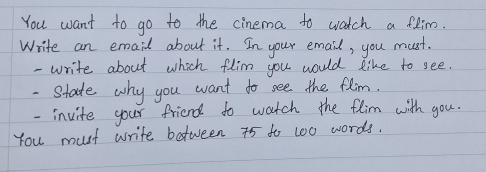 You want to go to the cinema to watch a flim.
Write an email about it. In your email, you must.
- write about which flim you would like to see.
- State why you want to see the flim.
- invite your friend to watch the flim with you.
You must write between 75 to 100 words.